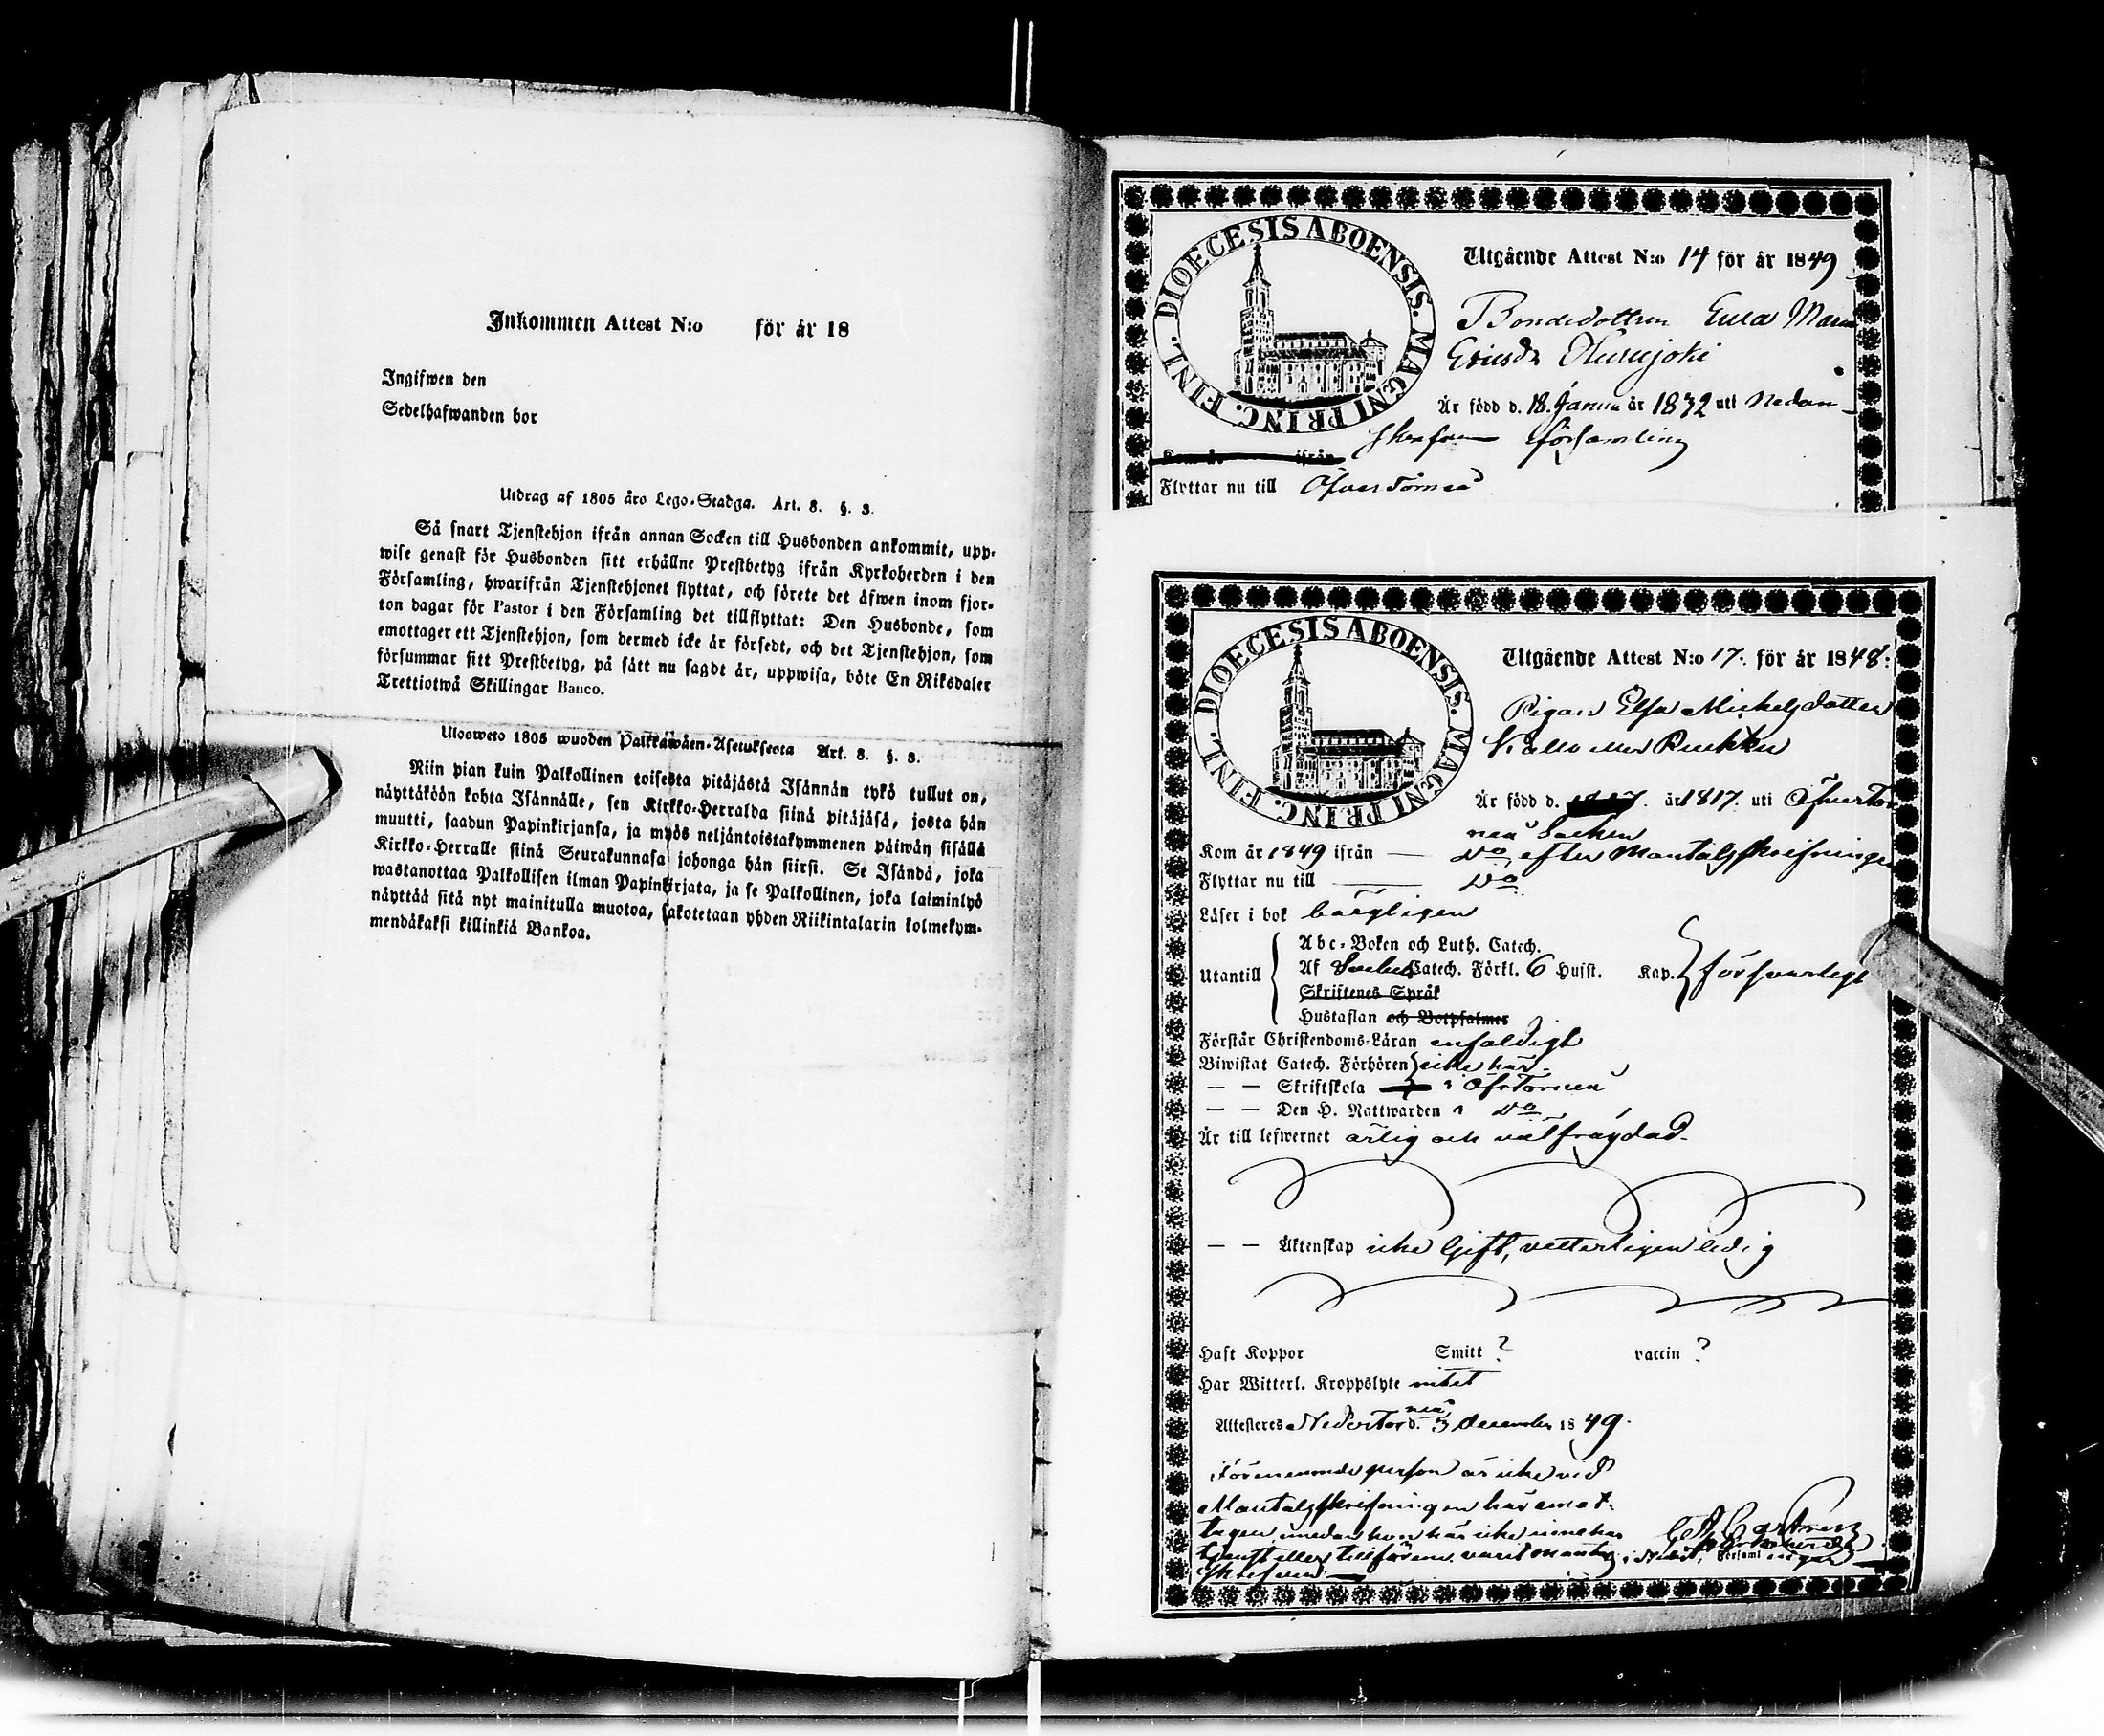 Inkommen Attest N:o för år 18
Ingifwen den
Sedelhafwanden bor
Utdrag af 1805 års Lego-Stadga. Art. 8. §. 3.
Så snart Tjenstehjon ifrån annan Socken till Husbonden ankommit, upp-
wise genast för Husbonden sitt erhållne Prestbetyg ifrån Kyrkoherden i den
Församling, hwarifrån Tjenstehjonet flyttat, och förete det äfwen inom fjor-
ton dagar för Pastor i den Församling det tillflyttat: Den Husbonde, som
emottager ett Tjenstehjon, som dermed icke är försedt, och det Tjenstehjon, som
försummar sitt Prestbetyg, på sätt nu sagdt är, uppwisa, böte En Riksdaler
Trettiotwå Skillingar Banco.
Ulosweto 1805 wuoden Palkkawäen-Asetuksesta Art. 8. §. 3.
Niin pian kuin Palkollinen toisesta pitäjästä Isännän tykö tullut on,
näyttäköön kohta Isännälle, sen Kirkko-Herralda siinä pitäjäsä, josta hän
muutti, saadun Papinkirjansa, ja myös neljäntoistakymmenen päiwän sisällä
Kirkko-Herralle siinä Seurakunnasa johonga hän siirsi. Se Isändä, joka
wastanottaa Palkollisen ilman Papinkirjata, ja se Palkollinen, joka laiminlyö
näyttää sitä nyt mainitulla muotoa, sakotetaan yhden Riikintalarin kolmekym-
mendäkaksi killinkiä Bankoa.
DIOECESIS ABOENSIS. MAGNI PRINC. FINL.
Utgående Attest N:o 14 för år 1849
Bondedottren Eva Maria
Ericsdr Kurujoki
Är född d. 18. Janu år 1832 uti Nedan
skrefvne församling
Kom år ifrån
Flyttar nu till Öfver Torneå
DIOECESIS ABOENSIS. MAGNI PRINC. FINL.
Utgående Attest N:o 17. för år 1848:
Pigan Elsa Michelsdotter
Kallo eller Ruokku
Är född d. år 1817. uti Öfvertor
neå Socken
Kom år 1849 ifrån — Do efter Mantalsskrifningen
Flyttar nu till — Do
Läser i bok
Utantill
Abc-Boken och Luth. Catech.
Af Catech. Förkl. 6 Hufst. Kap. försvarligt
Skriftenes Språk
Hustaflan och Botpsalmer
Förstår Christendoms-Läran enfaldigt
Biwistat Catech. Förhören icke här.
— — Skriftskola i Öfr Torneå
— — Den H. Nattwarden i Do
Är till lefwernet ärlig och välfrägdad.
— — Äktenskap icke Gift, vetterligen ledig
Haft Koppor Smitt ? vaccin ?
Har Witterl. Kroppslyte intet
Attesteres Nedertorneå d. 3 December 1849.
Förenämnde person är icke vid
Mantalsskrifningen här emot-
tagen, emedan hon här icke innehar
tjenst eller tillförene varit mantals
skrifven.